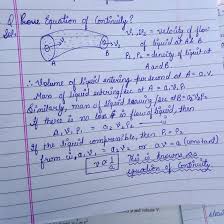 Q. Prove Equation of Continuity?
Sol.
V₁, V₂ = velocity of flow
of liquid at A & B
P₁, P₂ = density of liquid at
A and B.
A
B
∴ Volume of liquid entering per second at A = a₁v₁
Mass of liquid entering/sec at A = a₁v₁P₁
Similarly, mass of liquid leaving/sec at B = a₂v₂P₂
If there is no loss in flow of liquid, then
a₁v₁P₁ = a₂v₂P₂
If the liquid compressible, then P₁ = P₂
from a₁v₁ = a₂v₂ or av = a (constant)
v ∝ 1/a
This is known as
equation of continuity